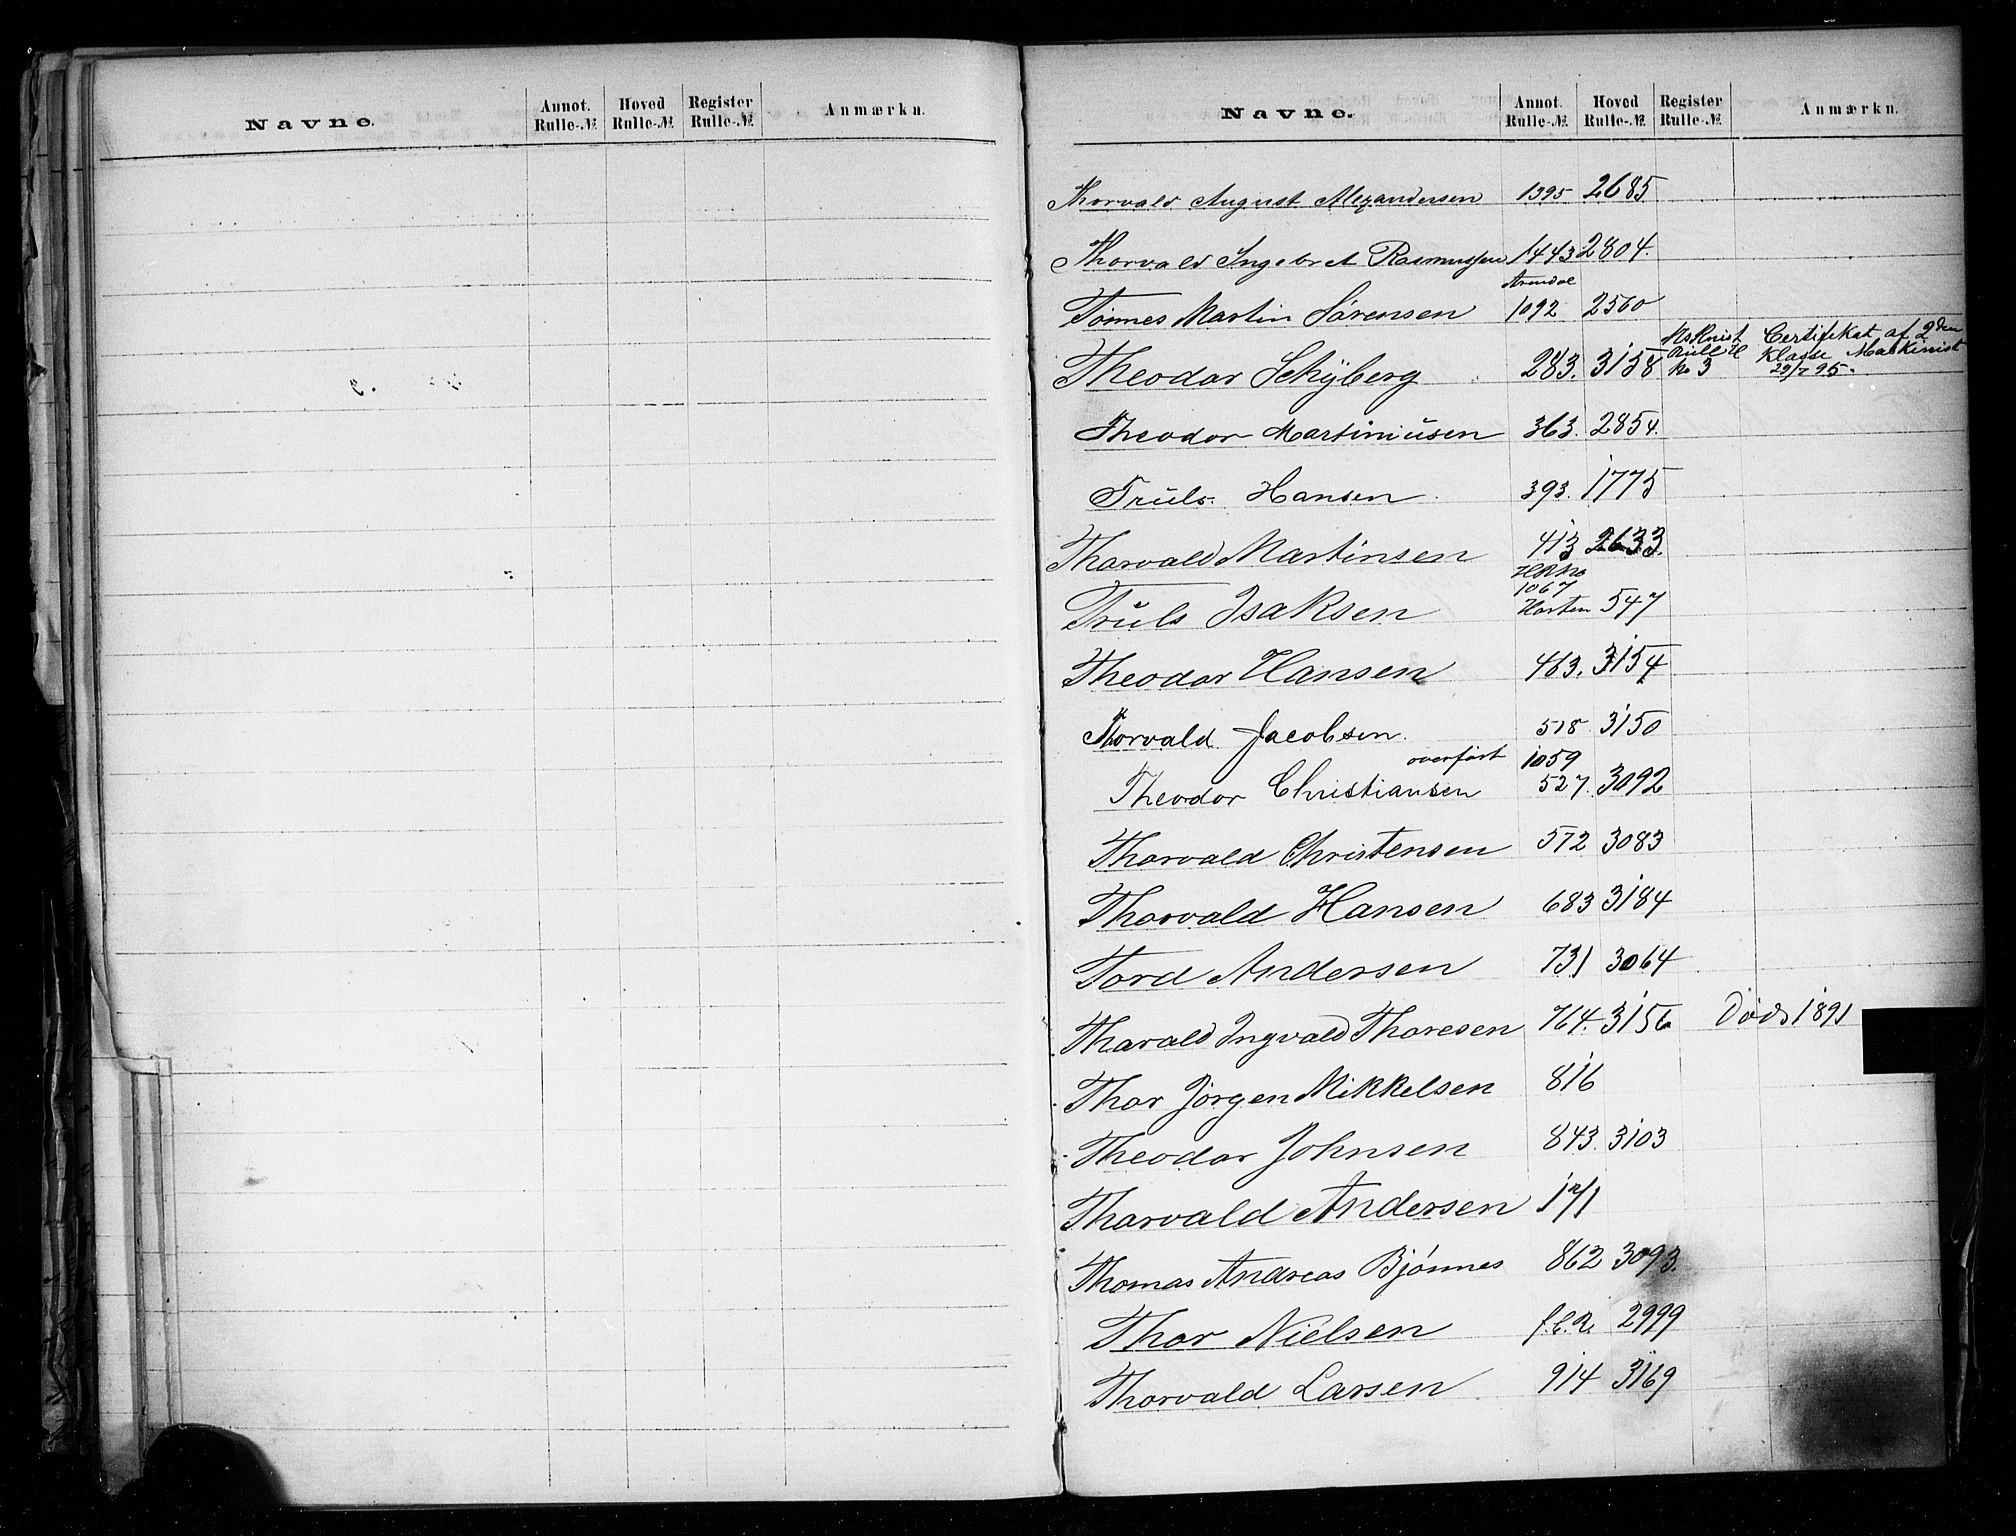 Navne. Annot. Rulle-№ Hoved Rulle-№ Register Rulle-№ Anmærkn.
Navne. Annot. Rulle-№ Hoved Rulle-№ Register Rulle-№ Anmærkn.
Thorvald August Alexandersen 1395 2685
Thorvald Ingebret Rasmussen 1443 2804.
Arendal
Tönnes Martin Sørensen 1092 2560
Theodor Schÿberg 283. 3158 Rulle No 3 Certifikat af 2den Klasse Maskinist 29/7 95.
Theodor Martiniüsen 363. 2854.
Trüls Hansen 393. 1775
Thorvald Martinsen 413 2633.
1067
Trüls Isaksen Horten 547
Theodor Hansen 463. 3154
Thorvald Jacobsen. 518 3150
overført 1059
Theodor Christiansen 527. 3092
Thorvald Christensen 572 3083
Thorvald Hansen 683 3184
Tord Andersen 731 3064
Tharald Ingvald Thoresen 764. 3156 Død 1891
Thor Jørgen Mikkelsen 816
Theodor Johnsen 843. 3103
Thorvald Andersen 171
Thomas Andreas Bjönnes 862 3093.
Thor Nielsen 2999
Thorvald Larsen 914 3169